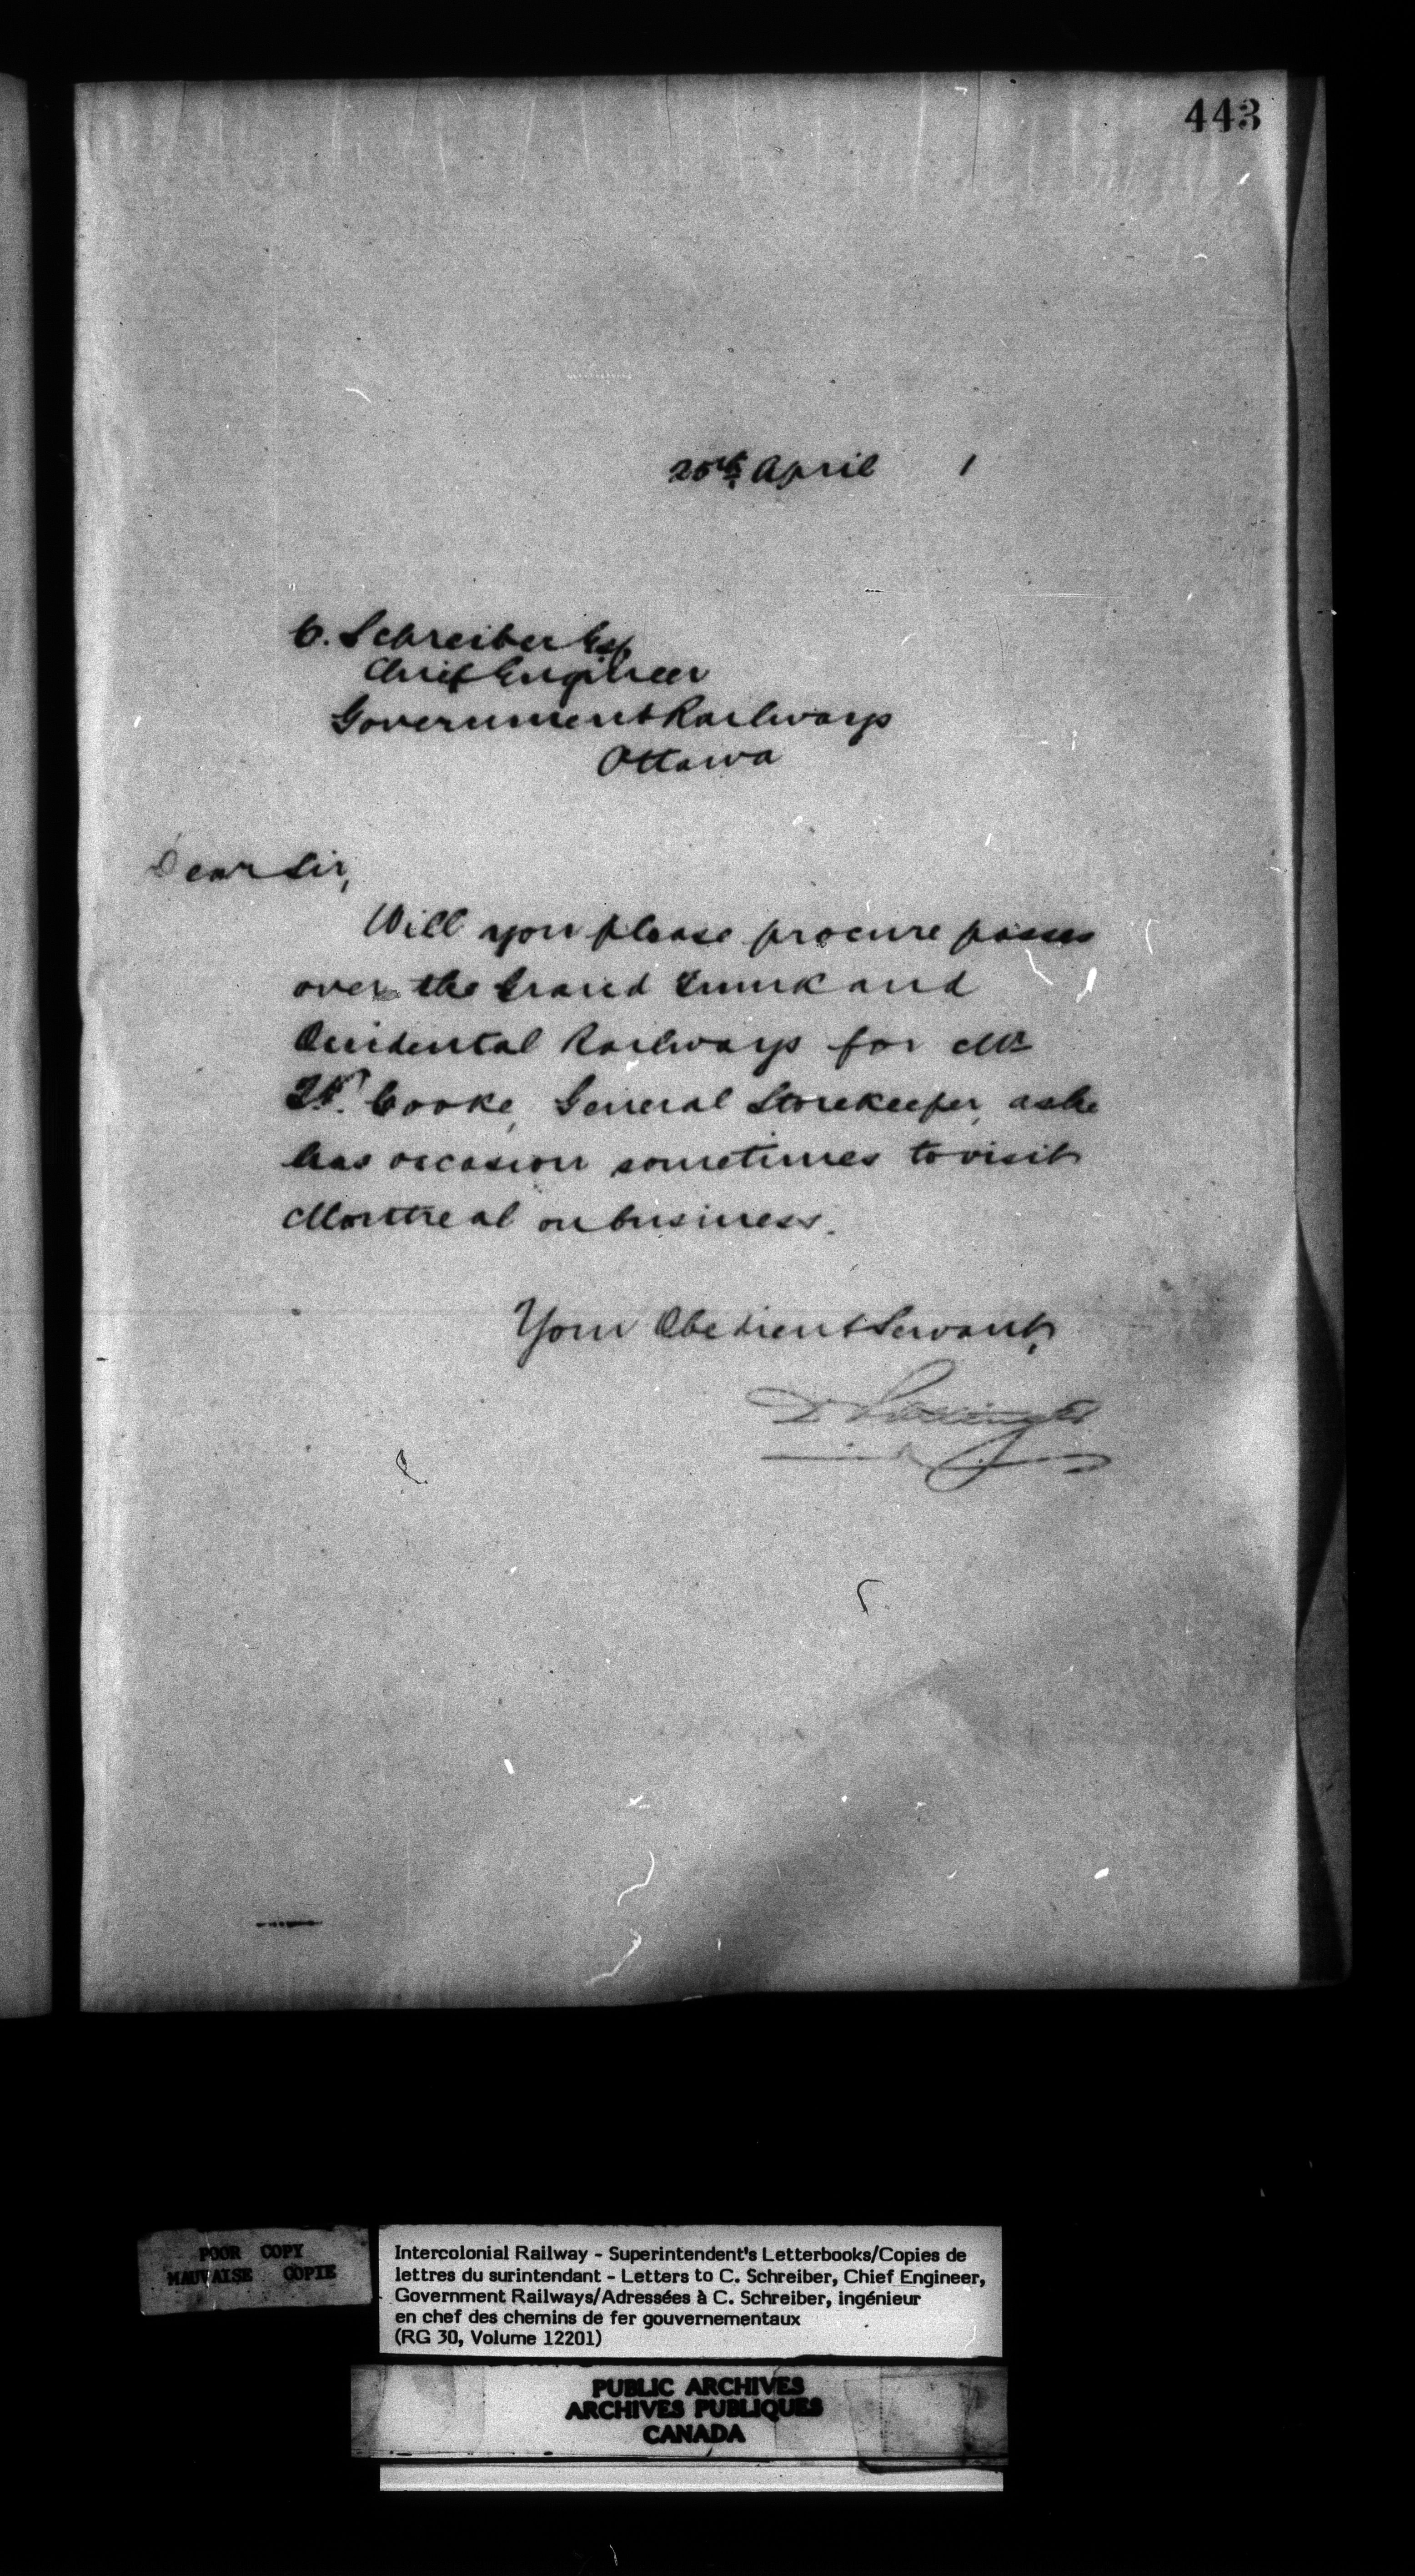 443
25th April 1
C. Schreiber Esq
Chief Engineer
Government Railways
Ottawa
Dear Sir,
Will you please procure passes
over the Grand Trunk and
Occidental Railways for Mr
Cooke, General Storekeeper, as he
has occasion sometimes to visit
Montreal on business.
Your Obedient Servant,
D Pottinger
POOR COPY
MAUVAISE COPIE
Intercolonial Railway - Superintendent's Letterbooks/Copies de
lettres du surintendant - Letters to C. Schreiber, Chief Engineer,
Government Railways/Adressées à C. Schreiber, ingénieur
en chef des chemins de fer gouvernementaux
(RG 30, Volume 12201)
PUBLIC ARCHIVES
ARCHIVES PUBLIQUES
CANADA